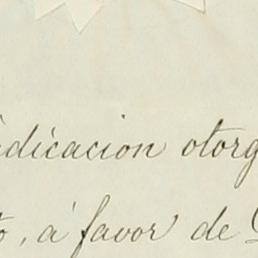 dicacion otorg
o, á favor de